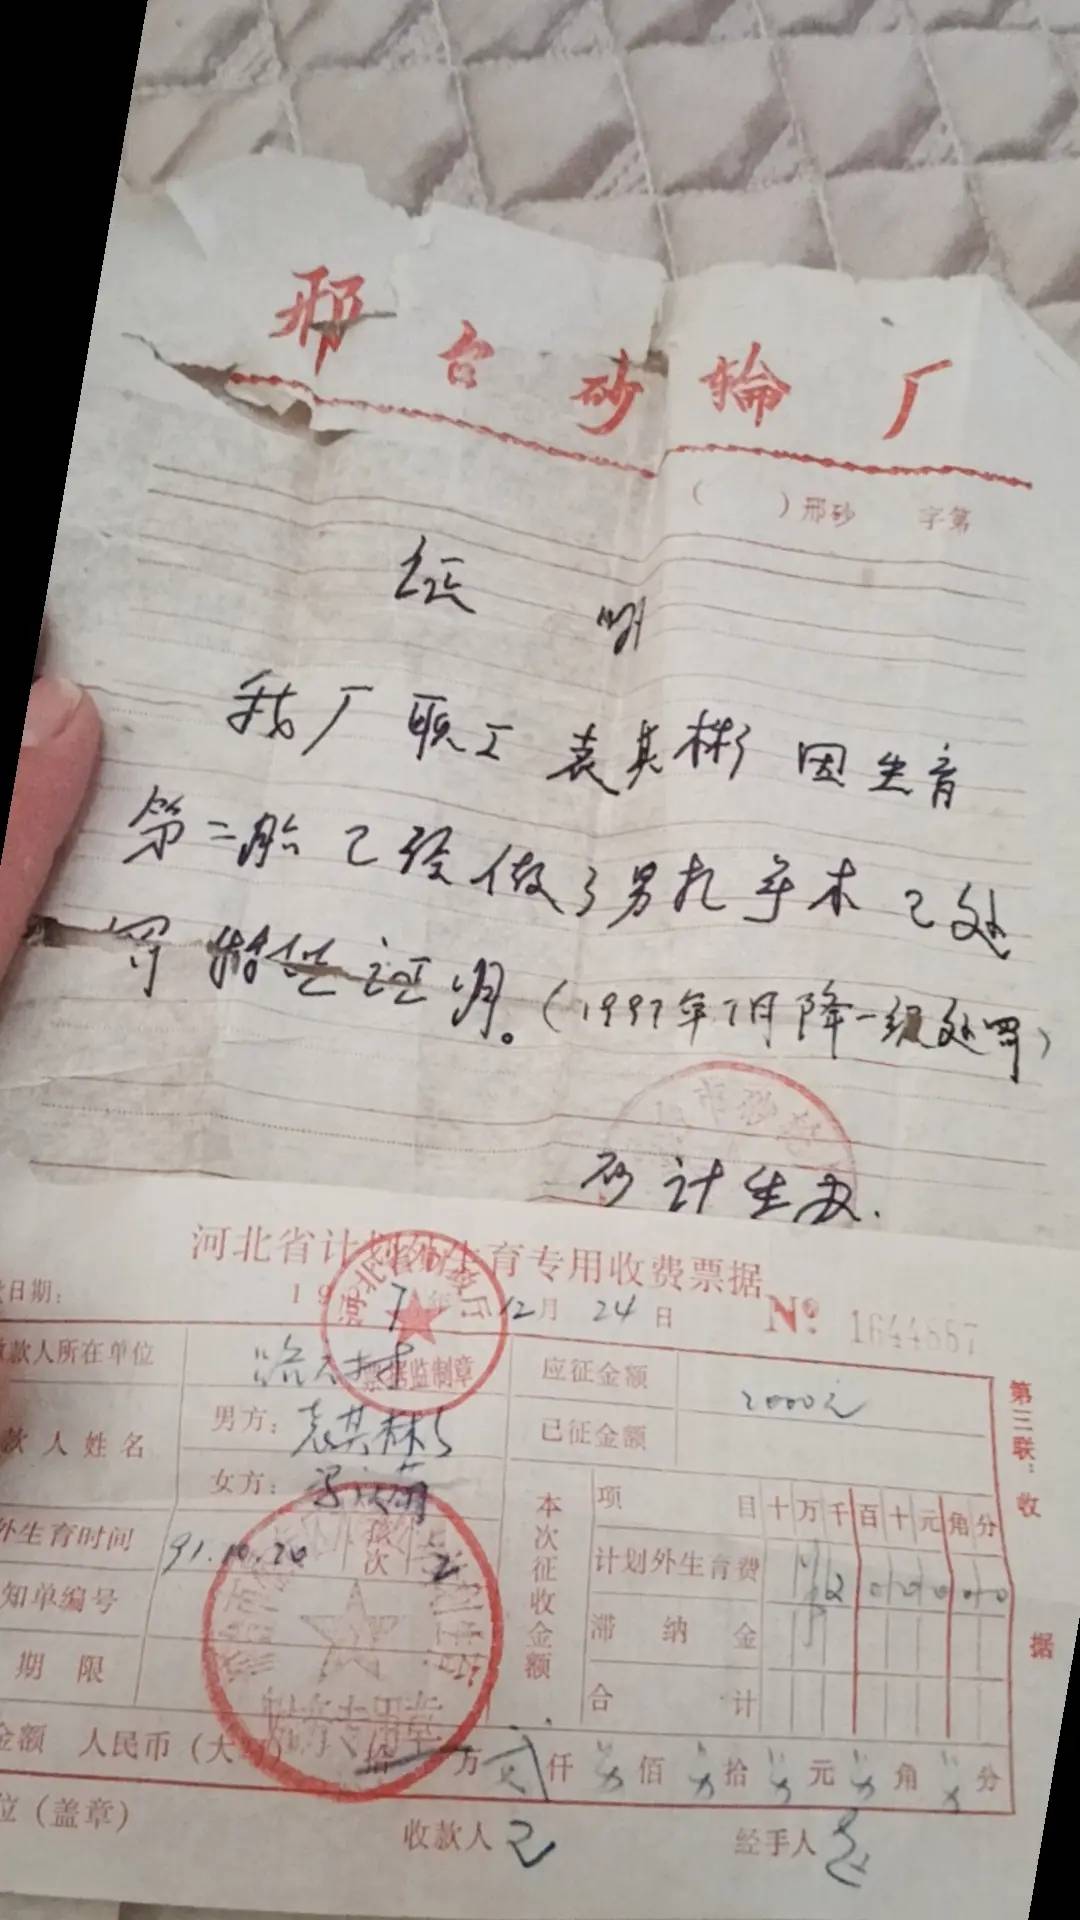 邢台砂輪厂
( )邢砂 字第
证明
我厂职工袁其彬因生育
第二胎已经做了男扎手术已处
罚 特此证明。(1997年7月降一级处罚)
市砂
砂计生办.
河北省计划外生育专用收费票据
日期: 19 7年 12月 24日 Nº 1644557
款人所在单位
应征金额 2000元
已征金额
款人姓名 男方: 袁其彬
女方:
外生育时间 91.10.20 孩次 2
知单编号
期限
本次征收金额
项目 十万千百十元角分
计划外生育费 2 0 0 0 0 0
滞纳金
合计
票据监制章
财务专用章
金额 人民币(大写) 拾 万 贰 仟 佰 拾 元 角 分
位(盖章) 收款人 经手人
第三联:收据